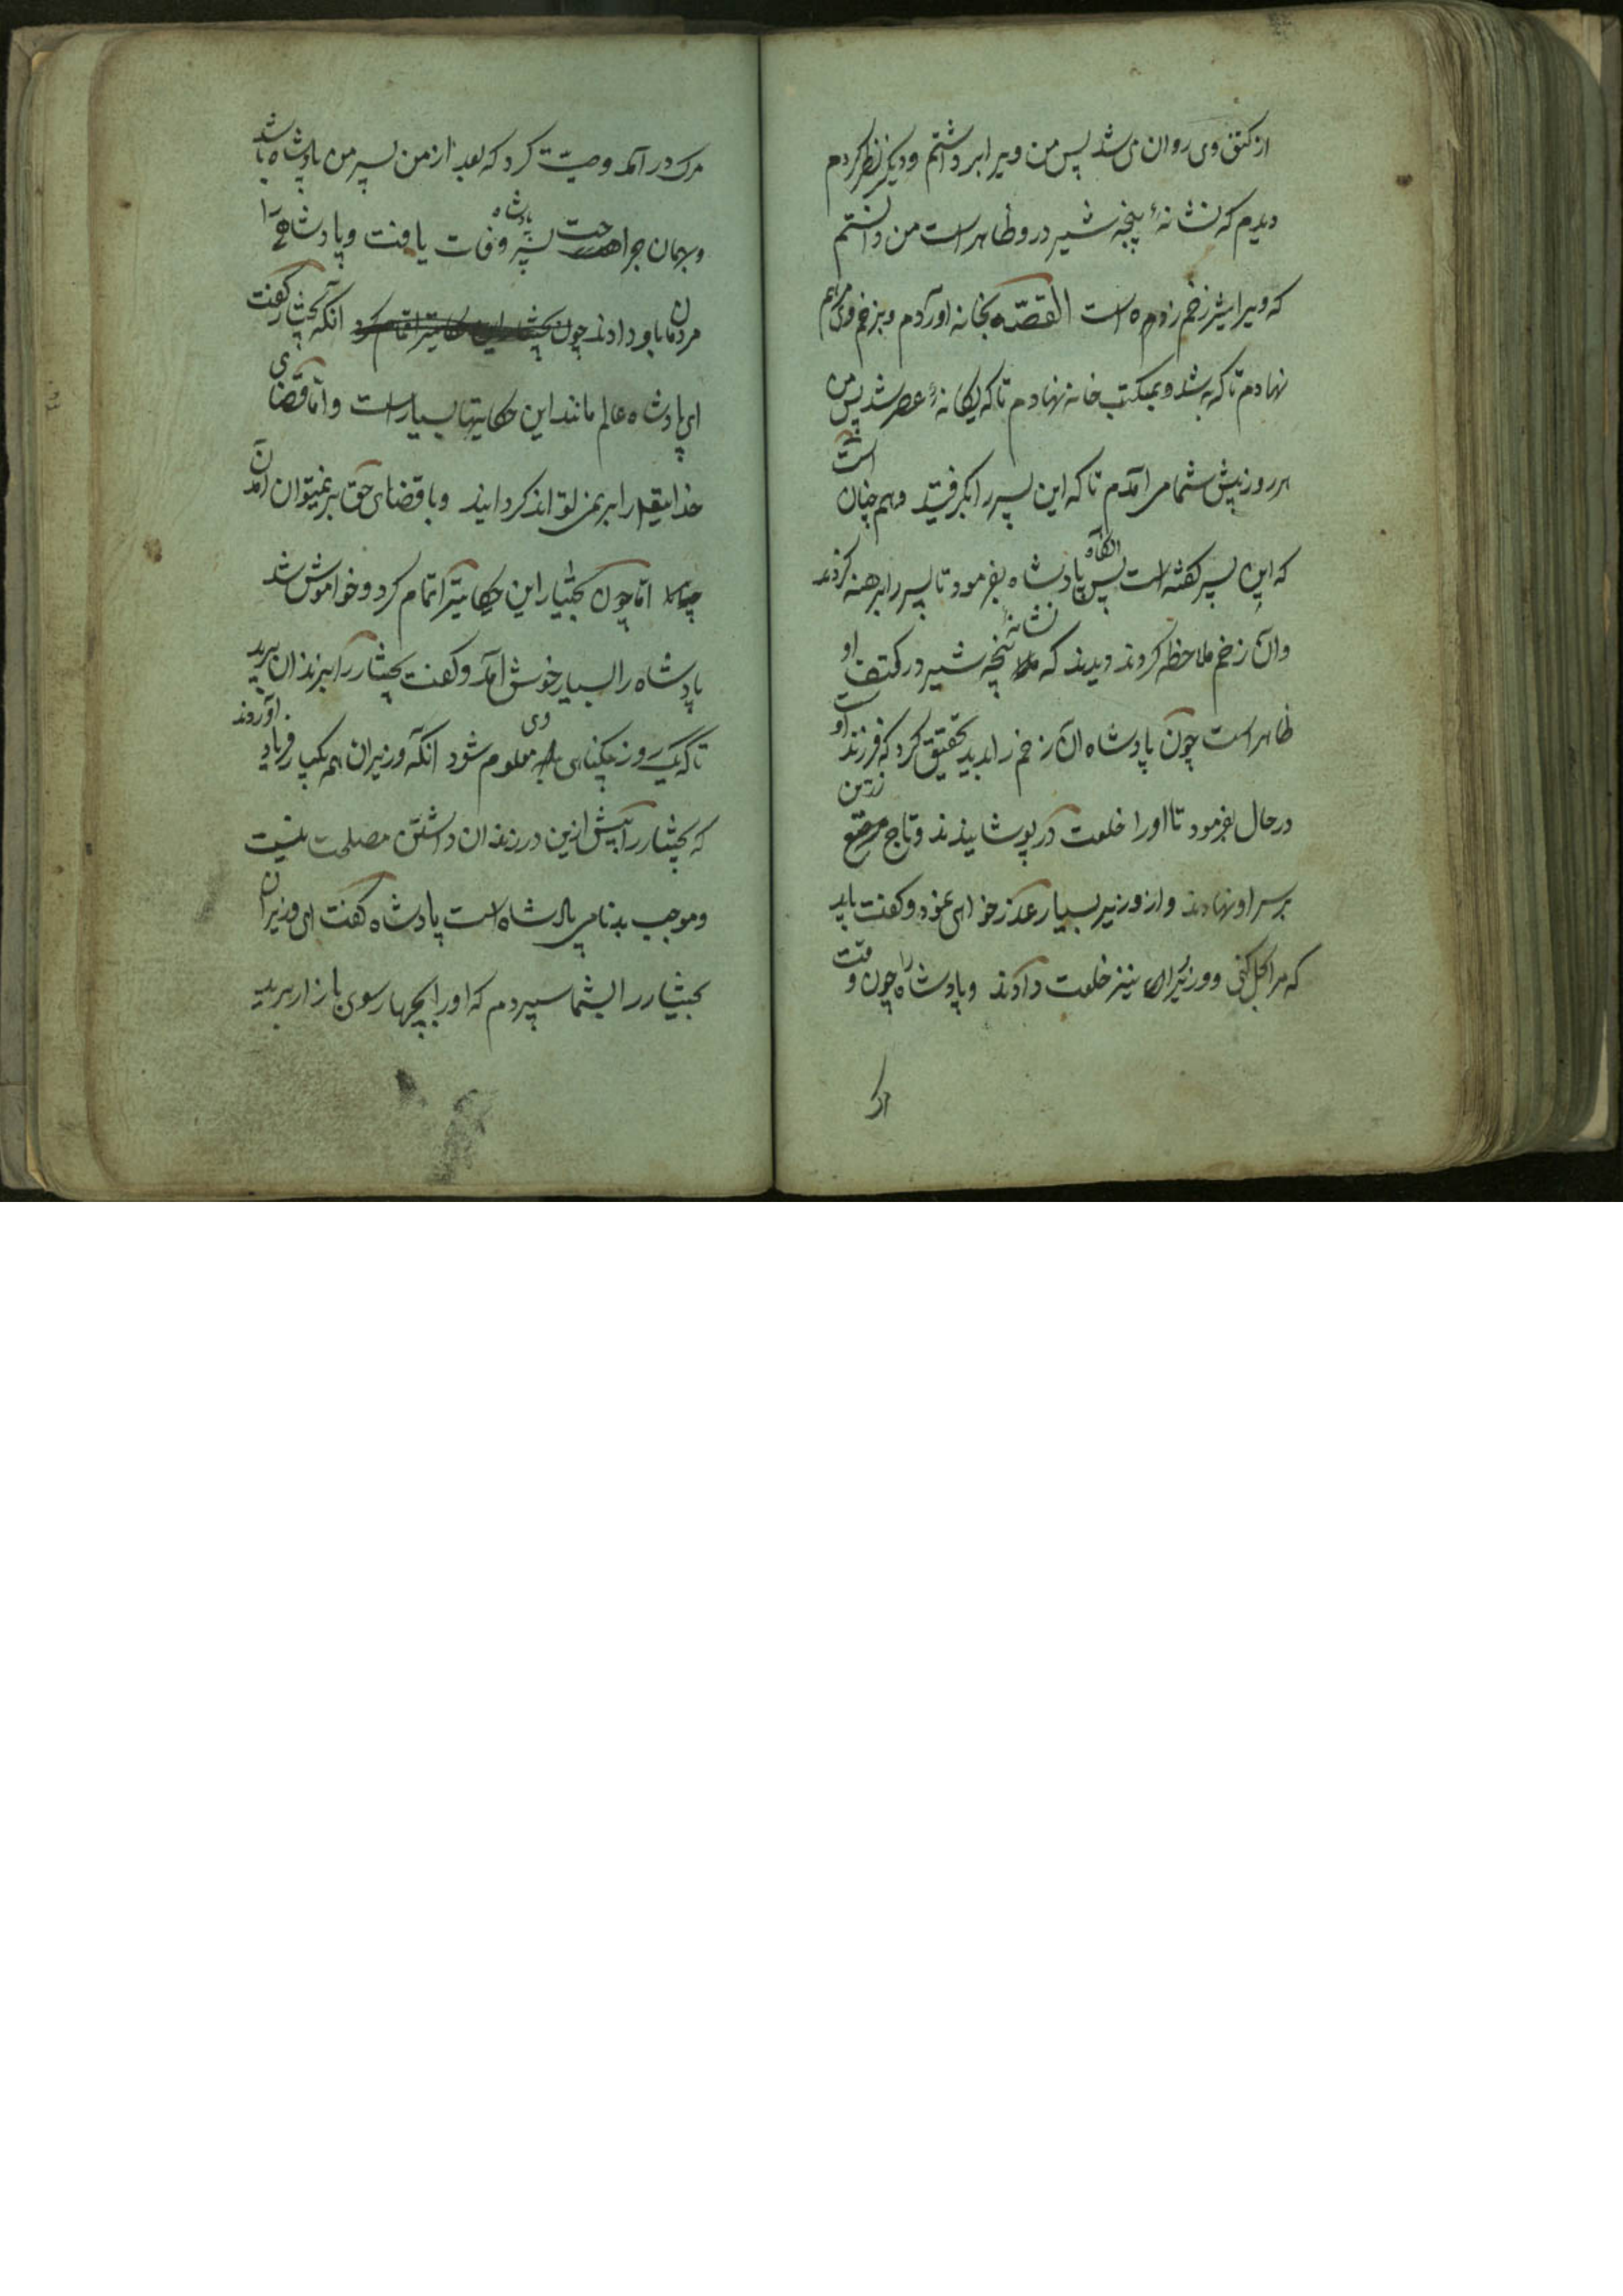 از کتف وی روان می شد پس من ویرا برداشتم و دیگر نظر کردم
دیدم که نشانهٔ پنجه شیر در و ظاهر است من دانستم
که ویرا شیر زخم زده است القصّه بخانه اوردم و بزخم وی مرهم
نهادم تا که به شد و بمکتب خانه نهادم تا که یکانهٔ عصر شد پس من
هر روز پیش شما می آمدم تا که این پسر را بکرفتید و هم چنان است
که این پسر کفته است پس انکاه پادشاه بفرمود تا پسر را برهنه کردند
وآن زخم ملاحظه کردند دیدند که نشانهٔ پنجه شیر در کتف او
ظاهر است چون پادشاه ان زخم را بدید تحقیق کرد که فرزند او ست
در حال بفرمود تا اورا خلعت زرین در پوشانیدند و تاج مرصّع
بر سر او نهادند و از وزیر بسیار عذر خواهی نمود و کفت باید
که مرا بحل کنی و وزیر را نیز خلعت دادند و پادشاه را چون وقت
مرک در آمد وصیّت کرد که بعد از من پسر من پادشاه باشد
و بهمان جراحت پادشاه وفات یافت و پادشاهی را
مردمان باو دادند چون بختیار این حکایترا تمام کرد انکه بختیار کفت
ای پادشاه عالم مانند این حکایتها بسیار است و امّا قضای
خدایتعم را بر نمی تواند کردانید و با قضای حق بر نمیتوان آمدن
امّا چون بختیار این حکایترا تمام کرد و خواموش شد
پادشاه را بسیار خوش آمد و کفت بختیار را بزندان برید
تا که یک روز بیکناهی وی معلوم شود انکه وزیران همه یکبار فریاد آوردند
که بختیار را بیش ازین در زندان داشتن مصلحت نیست
و موجب بدنامی پادشاه است پادشاه کفت ای وزیران
بختیار را بشما سپردم که اورا بچهار سوی بازار برید